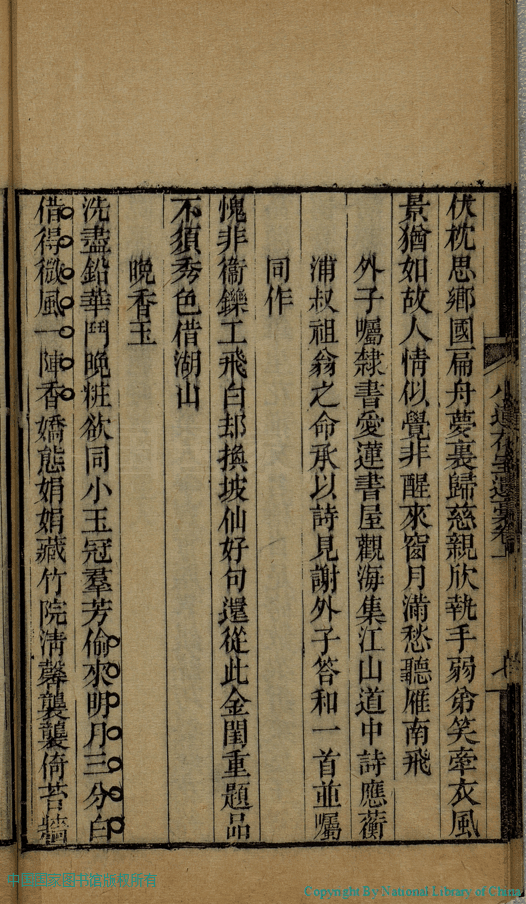 伏枕思鄉國扁舟夢裏歸慈親欣執手弱弟笑牽衣風
景猶如故人情似覺非醒來窗月滿愁聽雁南飛
外子囑隸書愛蓮書屋觀海集江山道中詩應蘅
浦叔祖翁之命承以詩見謝外子答和一首並囑
同作
愧非衞鑠工飛白却換坡仙好句還從此金閨重題品
不須秀色借湖山
晚香玉
洗盡鉛華鬥晚粧欲同小玉冠羣芳偷來明月三分白
借得微風一陣香嬌態娟娟藏竹院淸馨襲襲倚苔牆
中國國家圖書館版权所有
Copyright By National Library of China